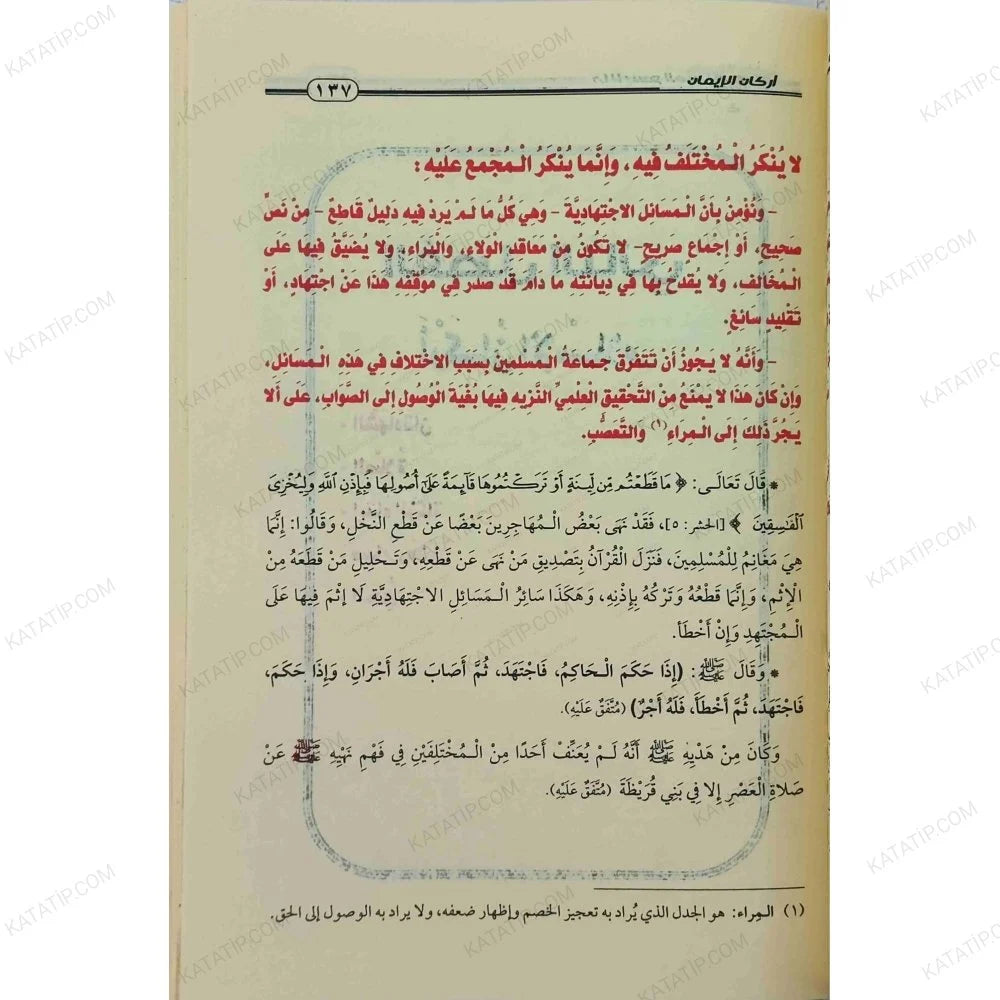 أركان الإيمان
١٣٧
لا يُنْكَرُ الْمُخْتَلَفُ فِيهِ، وَإِنَّمَا يُنْكَرُ الْمُجْمَعُ عَلَيْهِ:
- وَنُؤْمِنُ بِأَنَّ الْمَسَائِلَ الاجْتِهَادِيَّةَ - وَهِيَ كُلُّ مَا لَمْ يَرِدْ فِيهِ دَلِيلٌ قَاطِعٌ - مِنْ نَصٍّ
صَحِيحٍ، أَوْ إِجْمَاعٍ صَرِيحٍ- لا تَكُونُ مِنْ مَعَاقِدِ الْوَلاءِ، وَالْبَرَاءِ، وَلا يُضَيَّقُ فِيهَا عَلَى
الْمُخَالِفِ، وَلا يُقْدَحُ بِهَا فِي دِيَانَتِهِ مَا دَامَ قَدْ صَدَرَ فِي مَوْقِفِهِ هَذَا عَنْ اجْتِهَادٍ، أَوْ
تَقْلِيدٍ سَائِغٍ.
- وَأَنَّهُ لا يَجُوزُ أَنْ تَتَفَرَّقَ جَمَاعَةُ الْمُسْلِمِينَ بِسَبَبِ الاخْتِلافِ فِي هَذِهِ الْمَسَائِلِ،
وَإِنْ كَانَ هَذَا لا يَمْنَعُ مِنْ التَّحْقِيقِ الْعِلْمِيِّ النَّزِيهِ فِيهَا بُغْيَةَ الْوُصُولِ إِلَى الصَّوَابِ، عَلَى أَلا
يَجُرَّ ذَلِكَ إِلَى الْمِرَاءِ (١) وَالتَّعَصُّبِ.
* قَالَ تَعَالَى: ﴿ مَا قَطَعْتُم مِّن لِّينَةٍ أَوْ تَرَكْتُمُوهَا قَآئِمَةً عَلَىٰٓ أُصُولِهَا فَبِإِذْنِ ٱللَّهِ وَلِيُخْزِىَ
ٱلْفَٰسِقِينَ ﴾ [الحشر: ٥]، فَقَدْ نَهَى بَعْضُ الْمُهَاجِرِينَ بَعْضًا عَنْ قَطْعِ النَّخْلِ، وَقَالُوا: إِنَّمَا
هِيَ مَغَانِمُ لِلْمُسْلِمِينَ، فَنَزَلَ الْقُرْآنُ بِتَصْدِيقِ مَنْ نَهَى عَنْ قَطْعِهِ، وَتَحْلِيلِ مَنْ قَطَعَهُ مِنْ
الإِثْمِ، وَإِنَّمَا قَطْعُهُ وَتَرْكُهُ بِإِذْنِهِ، وَهَكَذَا سَائِرُ الْمَسَائِلِ الاجْتِهَادِيَّةِ لَا إِثْمَ فِيهَا عَلَى
الْمُجْتَهِدِ وَإِنْ أَخْطَأَ.
* وَقَالَ ﷺ: (إِذَا حَكَمَ الْحَاكِمُ، فَاجْتَهَدَ، ثُمَّ أَصَابَ فَلَهُ أَجْرَانِ، وَإِذَا حَكَمَ،
فَاجْتَهَدَ، ثُمَّ أَخْطَأَ، فَلَهُ أَجْرٌ) (مُتَّفَقٌ عَلَيْهِ).
وَكَانَ مِنْ هَدْيِهِ ﷺ أَنَّهُ لَمْ يُعَنِّفْ أَحَدًا مِنْ الْمُخْتَلِفِينَ فِي فَهْمِ نَهْيِهِ ﷺ عَنْ
صَلاةِ الْعَصْرِ إِلا فِي بَنِي قُرَيْظَةَ (مُتَّفَقٌ عَلَيْهِ).
(١) الـمِراء: هو الجدل الذي يُراد به تعجيز الخصم وإظهار ضعفه، ولا يراد به الوصول إلى الحق.
KATATİP.COM